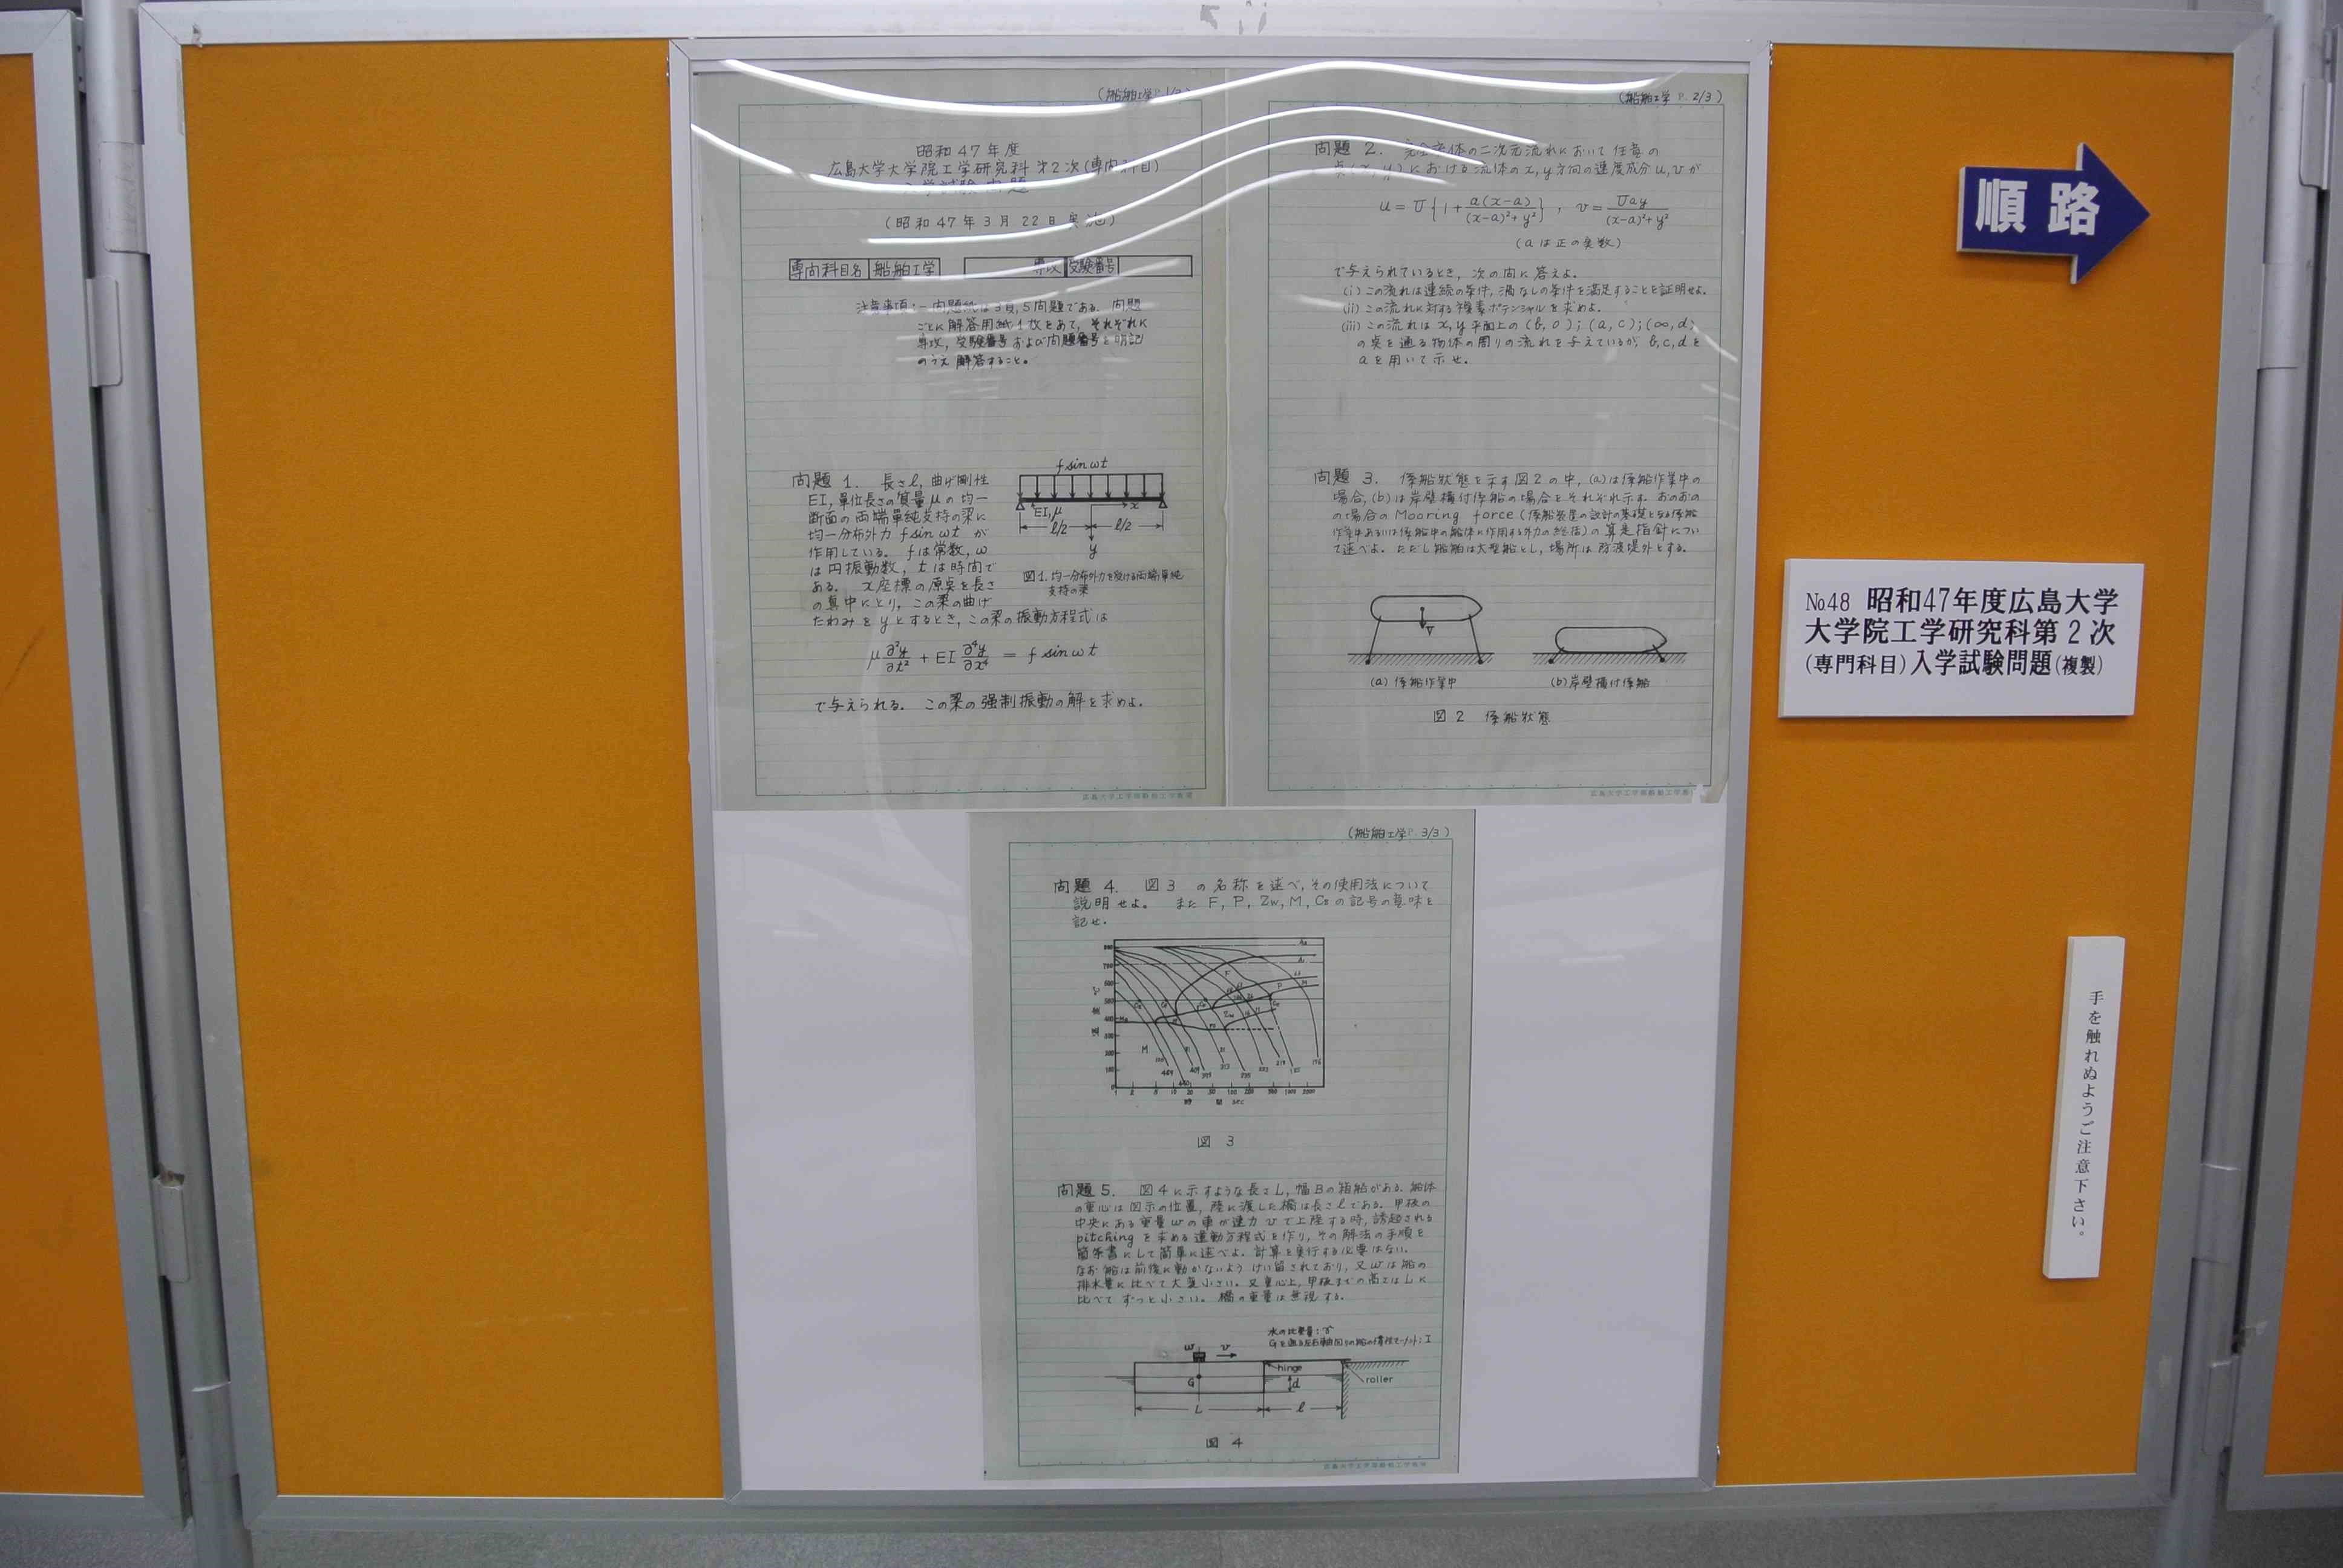 (船舶工学 P. 1/3)
昭和47年度
広島大学大学院工学研究科 第2次(専門科目)
入学試験問題
(昭和47年3月22日実施)
専門科目名 船舶工学 専攻 受験番号
注意事項:- 問題紙は3頁, 5問題である. 問題
ごとに解答用紙1枚をあて, それぞれに
専攻, 受験番号および問題番号を明記
のうえ解答すること。
問題 1. 長さℓ, 曲げ剛性
EI, 単位長さの質量μの均一
断面の両端単純支持の梁に
均一分布外力 f sin ωt が
作用している。 fは常数, ω
は円振動数, tは時間で
ある. x座標の原点を長さ
の真中にとり, この梁の曲げ
たわみをyとするとき, この梁の振動方程式は
f sin ωt
EI, μ
x
ℓ/2 ℓ/2
y
図1. 均一分布外力を受ける両端単純
支持の梁
μ ∂²y/∂t² + EI ∂⁴y/∂x⁴ = f sin ωt
で与えられる. この梁の強制振動の解を求めよ.
広島大学工学部船舶工学教室
(船舶工学 P. 2/3)
問題 2. 完全流体の二次元流れにおいて任意の
点(x, y)における流体のx, y方向の速度成分u, vが
u = U{1 + a(x-a)/((x-a)²+y²)}, v = Uay/((x-a)²+y²)
(aは正の実数)
で与えられているとき, 次の問に答えよ.
(i) この流れは連続の条件, 渦なしの条件を満足することを証明せよ.
(ii) この流れに対する複素ポテンシャルを求めよ.
(iii) この流れはx, y平面上の (b, 0); (a, c); (∞, d)
の点を通る物体の周りの流れを与えているが, b, c, dを
aを用いて示せ.
問題 3. 係船状態を示す図2の中, (a)は係船作業中の
場合, (b)は岸壁横付係船の場合をそれぞれ示す. おのおの
の場合の Mooring force (係船装置の設計の基礎となる係船
作業中あるいは係船中の船体に作用する外力の総括)の算定指針につい
て述べよ. ただし船舶は大型船とし, 場所は防波堤外とする.
V
(a) 係船作業中 (b) 岸壁横付係船
図 2 係船状態
広島大学工学部船舶工学教室
(船舶工学 P. 3/3)
問題 4. 図3 の名称を述べ, その使用法について
説明せよ. また F, P, Zw, M, Cs の記号の意味を
記せ.
M
時 間 sec
図 3
問題 5. 図4に示すような長さL, 幅Bの箱船がある. 船体
の重心は図示の位置, 陸に渡した橋は長さℓである. 甲板の
中央にある重量wの車が速力vで上陸する時, 誘起される
pitching を求める運動方程式を作り, その解法の手順を
箇条書にして簡単に述べよ. 計算を実行する必要はない.
なお船は前後に動かないようけい留されており, 又wは船の
排水量に比べて大変小さい. 又重心上, 甲板までの高さはLに
比べてずっと小さい. 橋の重量は無視する.
水の比重量: γ
Gを通る左右軸回りの船の慣性モーメント: I
w v
hinge
G d
roller
L ℓ
図 4
広島大学工学部船舶工学教室
順路
No.48 昭和47年度広島大学
大学院工学研究科第2次
(専門科目)入学試験問題(複製)
手を触れぬようご注意下さい。